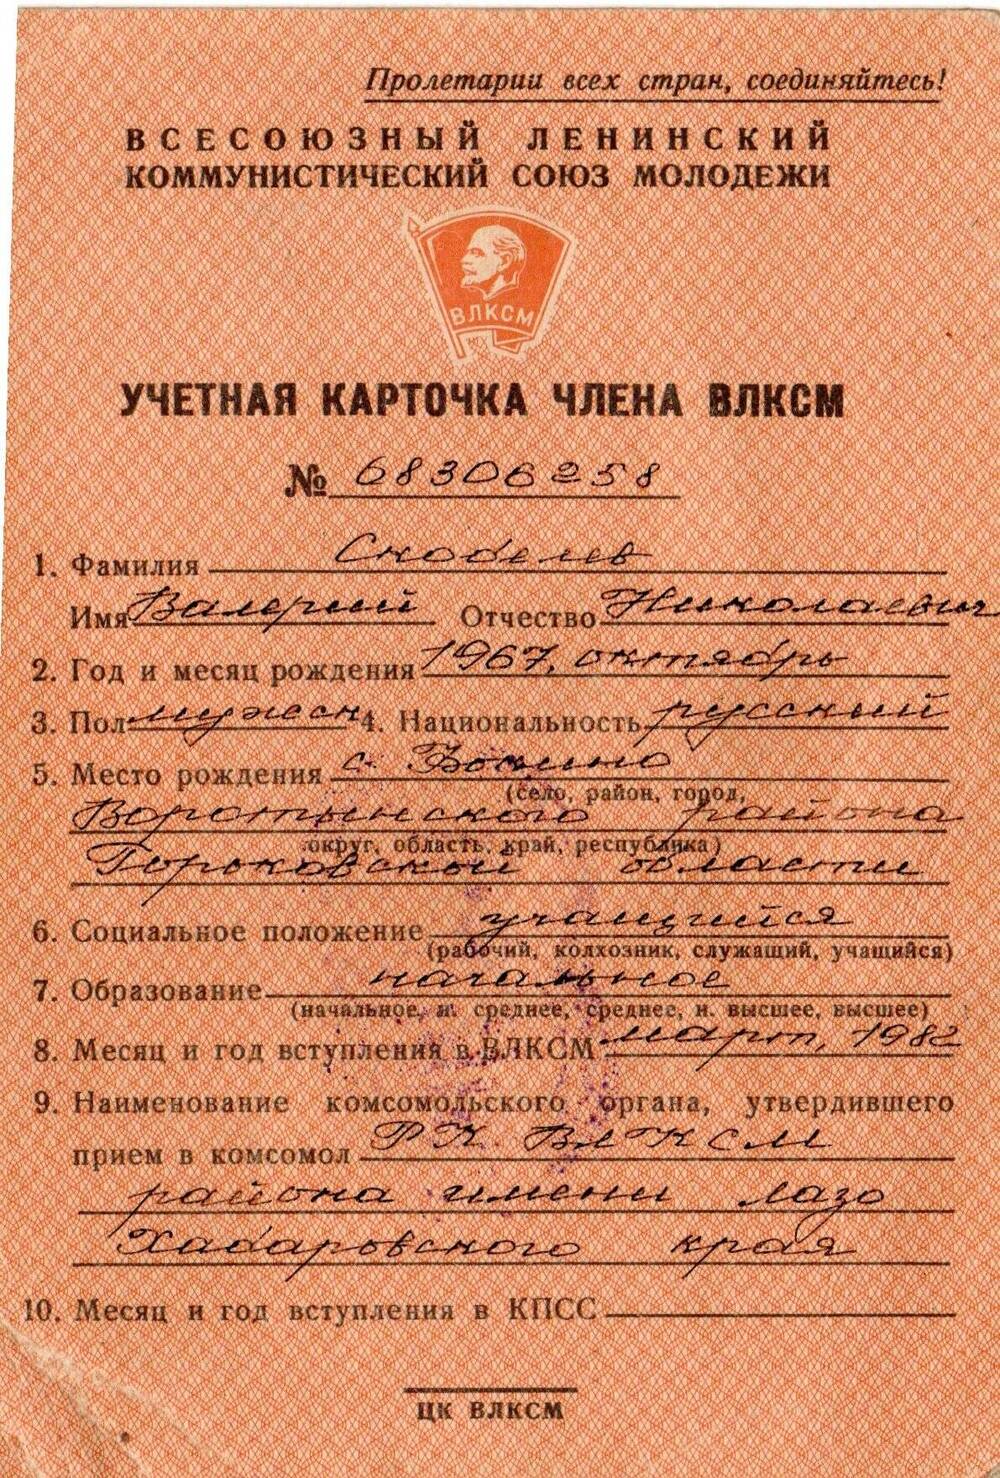 Пролетарии всех стран, соединяйтесь!
ВСЕСОЮЗНЫЙ ЛЕНИНСКИЙ
КОММУНИСТИЧЕСКИЙ СОЮЗ МОЛОДЕЖИ
ВЛКСМ
УЧЕТНАЯ КАРТОЧКА ЧЛЕНА ВЛКСМ
№ 68306258
1. Фамилия Скобелев
Имя Валерий Отчество Николаевич
2. Год и месяц рождения 1967, октябрь
3. Пол мужск 4. Национальность русский
5. Место рождения с.
(село, район, город,
Воротынского района
округ, область, край, республика)
Горьковской области
6. Социальное положение учащийся
(рабочий, колхозник, служащий, учащийся)
7. Образование начальное
(начальное, н. среднее, среднее, н. высшее, высшее)
8. Месяц и год вступления в ВЛКСМ март, 1982
9. Наименование комсомольского органа, утвердившего
прием в комсомол РК ВЛКСМ
района имени Лазо
Хабаровского края
10. Месяц и год вступления в КПСС
ЦК ВЛКСМ